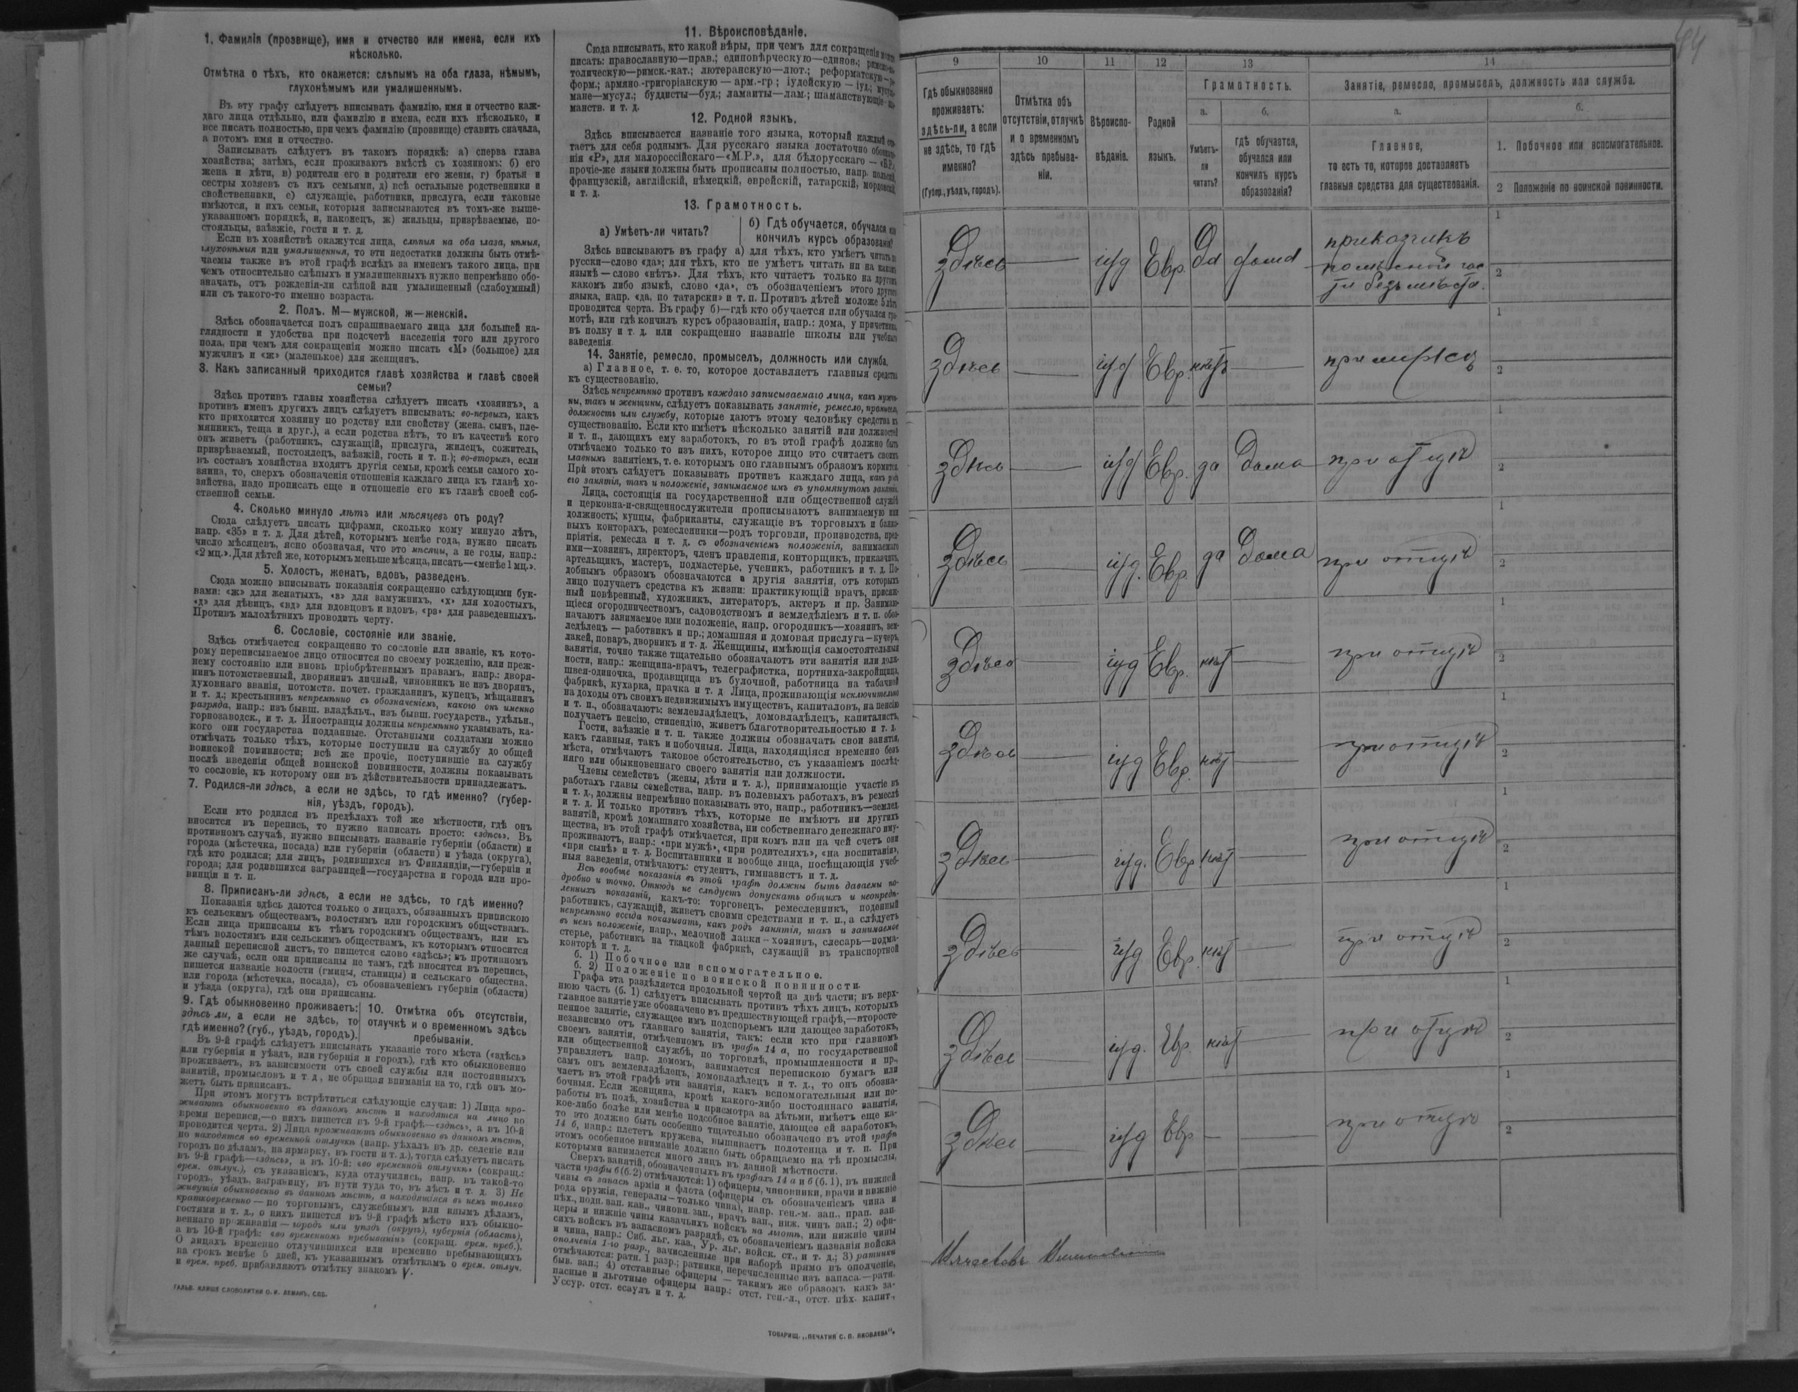 1. Фамилія (прозвище), имя и отчество или имена, если ихъ
нѣсколько.
Отмѣтка о тѣхъ, кто окажется: слѣпымъ на оба глаза, нѣмымъ,
глухонѣмымъ или умалишеннымъ.
Въ эту графу слѣдуетъ вписывать фамилію, имя и отчество каж-
даго лица отдѣльно, или фамилію и имена, если ихъ нѣсколько, и
все писать полностью, при чемъ фамилію (прозвище) ставить сначала,
а потомъ имя и отчество.
Записывать слѣдуетъ въ такомъ порядкѣ: а) сперва глава
хозяйства; затѣмъ, если проживаютъ вмѣстѣ съ хозяиномъ: б) его
жена и дѣти, в) родители его и родители его жены, г) братья и
сестры хозяевъ съ ихъ семьями, д) всѣ остальные родственники и
свойственники, е) служащіе, работники, прислуга, если таковые
имѣются, и ихъ семьи, которыя записываются въ томъ-же выше-
указанномъ порядкѣ, и, наконецъ, ж) жильцы, призрѣваемые, по-
стояльцы, заѣзжіе, гости и т. д.
Если въ хозяйствѣ окажутся лица, слѣпыя на оба глаза, нѣмыя,
глухонѣмыя или умалишенныя, то эти недостатки должны быть отмѣ-
чаемы также въ этой графѣ вслѣдъ за именемъ такого лица, при
чемъ относительно слѣпыхъ и умалишенныхъ нужно непремѣнно обо-
значать, отъ рожденія-ли слѣпой или умалишенный (слабоумный)
или съ такого-то именно возраста.
2. Полъ. М—мужской, ж—женскій.
Здѣсь обозначается полъ спрашиваемаго лица для большей на-
глядности и удобства при подсчетѣ населенія того или другого
пола, при чемъ для сокращенія можно писать «М» (большое) для
мужчинъ и «ж» (маленькое) для женщинъ.
3. Какъ записанный приходится главѣ хозяйства и главѣ своей
семьи?
Здѣсь противъ главы хозяйства слѣдуетъ писать «хозяинъ», а
противъ именъ другихъ лицъ слѣдуетъ вписывать: во-первыхъ, какъ
кто приходится хозяину по родству или свойству (жена, сынъ, пле-
мянникъ, теща и друг.), а если родства нѣтъ, то въ качествѣ кого
онъ живетъ (работникъ, служащій, прислуга, жилецъ, сожитель,
призрѣваемый, постоялецъ, заѣзжій, гость и т. п.); во-вторыхъ, если
въ составъ хозяйства входятъ другія семьи, кромѣ семьи самого хо-
зяина, то, сверхъ обозначенія отношенія каждаго лица къ главѣ хо-
зяйства, надо прописать еще и отношеніе его къ главѣ своей соб-
ственной семьи.
4. Сколько минуло лѣтъ или мѣсяцевъ отъ роду?
Сюда слѣдуетъ писать цифрами, сколько кому минуло лѣтъ,
напр. «35» и т. д. Для дѣтей, которымъ менѣе года, нужно писать
число мѣсяцевъ, ясно обозначая, что это мѣсяцы, а не годы, напр.:
«2 мц.». Для дѣтей же, которымъ меньше мѣсяца, писать—«менѣе 1 мц.».
5. Холостъ, женатъ, вдовъ, разведенъ.
Сюда можно вписывать показанія сокращенно слѣдующими бук-
вами: «ж» для женатыхъ, «з» для замужнихъ, «х» для холостыхъ,
«д» для дѣвицъ, «вд» для вдовцовъ и вдовъ, «рв» для разведенныхъ.
Противъ малолѣтнихъ проводить черту.
6. Сословіе, состояніе или званіе.
Здѣсь отмѣчается сокращенно то сословіе или званіе, къ кото-
рому переписываемое лицо относится по своему рожденію, или преж-
нему состоянію или вновь пріобрѣтеннымъ правамъ, напр.: дворя-
нинъ потомственный, дворянинъ личный, чиновникъ не изъ дворянъ,
духовнаго званія, потомств. почет. гражданинъ, купецъ, мѣщанинъ
и т. д.; крестьянинъ непремѣнно съ обозначеніемъ, какого онъ именно
разряда, напр.: изъ бывш. владѣльч., изъ бывш. государств., удѣльн.,
горнозаводск., и т. д. Иностранцы должны непремѣнно указывать, ка-
кого они государства подданные. Отставными солдатами можно
отмѣчать только тѣхъ, которые поступили на службу до общей
воинской повинности; всѣ же прочіе, поступившіе на службу
послѣ введенія общей воинской повинности, должны показывать
то сословіе, къ которому они въ дѣйствительности принадлежатъ.
7. Родился-ли здѣсь, а если не здѣсь, то гдѣ именно? (губер-
нія, уѣздъ, городъ).
Если кто родился въ предѣлахъ той же мѣстности, гдѣ онъ
вносится въ перепись, то нужно написать просто: «здѣсь». Въ
противномъ случаѣ, нужно вписывать названіе губерніи (области) и
города (мѣстечка, посада) или губерніи (области) и уѣзда (округа),
гдѣ кто родился; для лицъ, родившихся въ Финляндіи,—губерніи и
города; для родившихся заграницей—государства и города или про-
винціи и т. п.
8. Приписанъ-ли здѣсь, а если не здѣсь, то гдѣ именно?
Показанія здѣсь даются только о лицахъ, обязанныхъ припискою
къ сельскимъ обществамъ, волостямъ или городскимъ обществамъ.
Если лица приписаны къ тѣмъ городскимъ обществамъ, или къ
тѣмъ волостямъ или сельскимъ обществамъ, къ которымъ относится
данный переписной листъ, то пишется слово «здѣсь»; въ противномъ
же случаѣ, если они приписаны не тамъ, гдѣ вносятся въ перепись,
пишется названіе волости (гмины, станицы) и сельскаго общества,
или города (мѣстечка, посада), съ обозначеніемъ губерніи (области)
и уѣзда (округа), гдѣ они приписаны.
9. Гдѣ обыкновенно проживаетъ:
здѣсь ли, а если не здѣсь, то
гдѣ именно? (губ., уѣздъ, городъ).
10. Отмѣтка объ отсутствіи,
отлучкѣ и о временномъ здѣсь
пребываніи.
Въ 9-й графѣ слѣдуетъ вписывать указаніе того мѣста («здѣсь»
или губернія и уѣздъ, или губернія и городъ), гдѣ кто обыкновенно
проживаетъ, въ зависимости отъ своей службы или постоянныхъ
занятій, промысловъ и т. д., не обращая вниманія на то, гдѣ онъ мо-
жетъ быть приписанъ.
При этомъ могутъ встрѣтиться слѣдующіе случаи: 1) Лица про-
живаютъ обыкновенно въ данномъ мѣстѣ и находятся на лицо во
время переписи,—о нихъ пишется въ 9-й графѣ—«здѣсь», а въ 10-й
проводится черта. 2) Лица проживаютъ обыкновенно въ данномъ мѣстѣ,
но находятся во временной отлучкѣ (напр. уѣхалъ въ др. селеніе или
городъ по дѣламъ, на ярмарку, въ гости и т. д.), тогда слѣдуетъ писать
въ 9-й графѣ—«здѣсь», а въ 10-й: «во временной отлучкѣ» (сокращ.:
врем. отлуч.), съ указаніемъ, куда отлучились, напр. въ такой-то
городъ, уѣздъ, заграницу, въ пути туда то, въ лѣсъ и т. д. 3) Не
живущія обыкновенно въ данномъ мѣстѣ, а находящіяся въ немъ только
кратковременно — по торговымъ, служебнымъ или инымъ дѣламъ,
гостями и т. д., о нихъ пишется въ 9-й графѣ мѣсто ихъ обыкно-
веннаго проживанія — городъ или уѣздъ (округъ), губернія (область),
а въ 10-й графѣ: «во временномъ пребываніи» (сокращ. врем. преб.).
О лицахъ временно отлучившихся или временно пребывающихъ
на срокъ менѣе 5 дней, къ указаннымъ отмѣткамъ о врем. отлуч.
и врем. преб. прибавляютъ отмѣтку знакомъ V.
11. Вѣроисповѣданіе.
Сюда вписывать, кто какой вѣры, при чемъ для сокращенія
писать: православную—прав.; единовѣрческую—единов.;
толическую—римск.-кат.; лютеранскую—лют.; реформатскую—
форм.; армяно-григоріанскую — арм.-гр; іудейскую — іуд.;
мане—мусул.; буддисты—буд.; ламаиты—лам.; шаманствующіе—
манств. и т. д.
12. Родной языкъ.
Здѣсь вписывается названіе того языка, который каждый
таетъ для себя роднымъ. Для русскаго языка достаточно
нія «Р», для малороссійскаго—«М.Р.», для бѣлорусскаго — «Б.Р.»
прочіе-же языки должны быть прописаны полностью, напр.
французскій, англійскій, нѣмецкій, еврейскій, татарскій,
и т. д.
13. Грамотность.
а) Умѣетъ-ли читать?
б) Гдѣ обучается, обучался или
кончилъ курсъ образованія?
Здѣсь вписываютъ въ графу а) для тѣхъ, кто умѣетъ читать
русски—слово «да»; для тѣхъ, кто не умѣетъ читать ни на какомъ
языкѣ — слово «нѣтъ». Для тѣхъ, кто читаетъ только на другомъ
какомъ либо языкѣ, слово «да», съ обозначеніемъ этого другого
языка, напр. «да, по татарски» и т. п. Противъ дѣтей моложе 5 лѣтъ
проводится черта. Въ графу б)—гдѣ кто обучается или обучался гра-
мотѣ, или гдѣ кончилъ курсъ образованія, напр.: дома, у причетника,
въ полку и т. д. или сокращенно названіе школы или учебнаго
заведенія.
14. Занятіе, ремесло, промыселъ, должность или служба.
а) Главное, т. е. то, которое доставляетъ главныя средства
къ существованію.
Здѣсь непремѣнно противъ каждаго записываемаго лица, какъ мужчи-
ны, такъ и женщины, слѣдуетъ показывать занятіе, ремесло, промыселъ,
должность или службу, которые даютъ этому человѣку средства къ
существованію. Если кто имѣетъ нѣсколько занятій или должностей
и т. п., дающихъ ему заработокъ, то въ этой графѣ должно быть
отмѣчено только то изъ нихъ, которое лицо это считаетъ своимъ
главнымъ занятіемъ, т. е. которымъ оно главнымъ образомъ кормится.
При этомъ слѣдуетъ показывать противъ каждаго лица, какъ родъ
его занятія, такъ и положеніе, занимаемое имъ въ упомянутомъ занятіи.
Лица, состоящія на государственной или общественной службѣ
и церковно-и-священнослужители прописываютъ занимаемую ими
должность; купцы, фабриканты, служащіе въ торговыхъ и
выхъ конторахъ, ремесленники—родъ торговли, производства,
пріятія, ремесла и т. д. съ обозначеніемъ положенія, занимаемаго
ими—хозяинъ, директоръ, членъ правленія, конторщикъ, приказчикъ,
артельщикъ, мастеръ, подмастерье, ученикъ, работникъ и т. д. По-
добнымъ образомъ обозначаются и другія занятія, отъ которыхъ
лицо получаетъ средства къ жизни: практикующій врачъ, присяж-
ный повѣренный, художникъ, литераторъ, актеръ и пр. Занимаю-
щіеся огородничествомъ, садоводствомъ и земледѣліемъ и т. п. обоз-
начаютъ занимаемое ими положеніе, напр. огородникъ—хозяинъ, зем-
ледѣлецъ — работникъ и пр.; домашняя и домовая прислуга—кучеръ,
лакей, поваръ, дворникъ и т. д. Женщины, имѣющія самостоятельныя
занятія, точно также тщательно обозначаютъ эти занятія или долж-
ности, напр.: женщина-врачъ, телеграфистка, портниха-закройщица,
швея-одиночка, продавщица въ булочной, работница на табачной
фабрикѣ, кухарка, прачка и т. д. Лица, проживающія исключительно
на доходы отъ своихъ недвижимыхъ имуществъ, капиталовъ, на пенсію
и т. п., обозначаютъ: землевладѣлецъ, домовладѣлецъ, капиталистъ,
получаетъ пенсію, стипендію, живетъ благотворительностью и т. д.
Гости, заѣзжіе и т. п. также должны обозначать свои занятія,
какъ главныя, такъ и побочныя. Лица, находящіяся временно безъ
мѣста, отмѣчаютъ таковое обстоятельство, съ указаніемъ послѣд-
няго или обыкновеннаго своего занятія или должности.
Члены семействъ (жены, дѣти и т. д.), принимающіе участіе въ
работахъ главы семейства, напр. въ полевыхъ работахъ, въ ремеслѣ
и т. д., должны непремѣнно показывать это, напр., работникъ—землед.
и т. д. И только противъ тѣхъ, которые не имѣютъ ни другихъ
занятій, кромѣ домашняго хозяйства, ни собственнаго денежнаго иму-
щества, въ этой графѣ отмѣчается, при комъ или на чей счетъ они
проживаютъ, напр.: «при мужѣ», «при родителяхъ», «на воспитаніи»,
«при сынѣ» и т. д. Воспитанники и вообще лица, посѣщающія учеб-
ныя заведенія, отмѣчаютъ: студентъ, гимназистъ и т. д.
Всѣ вообще показанія въ этой графѣ должны быть даваемы по-
дробно и точно. Отнюдь не слѣдуетъ допускать общихъ и неопредѣ-
ленныхъ показаній, какъ-то: торговецъ, ремесленникъ, поденный
работникъ, служащій, живетъ своими средствами и т. п., а слѣдуетъ
непремѣнно всегда показывать, какъ родъ занятія, такъ и занимаемое
въ немъ положеніе, напр., мелочной лавки — хозяинъ, слесарь—подма-
стерье, работникъ на ткацкой фабрикѣ, служащій въ транспортной
конторѣ и т. д.
б. 1) Побочное или вспомогательное.
б. 2) Положеніе по воинской повинности.
Графа эта раздѣляется продольной чертой на двѣ части; въ верх-
нюю часть (б. 1) слѣдуетъ вписывать противъ тѣхъ лицъ, которыхъ
главное занятіе уже обозначено въ предшествующей графѣ,—второсте-
пенное занятіе, служащее имъ подспорьемъ или дающее заработокъ,
независимо отъ главнаго занятія, такъ: если кто при главномъ
своемъ занятіи, отмѣченномъ въ графѣ 14 а, по государственной
или общественной службѣ, по торговлѣ, промышленности и пр.,
управляетъ напр. домомъ, занимается перепиской бумагъ или
самъ онъ землевладѣлецъ, домовладѣлецъ и т. д., то онъ обозна-
чаетъ въ этой графѣ эти занятія, какъ вспомогательныя или по-
бочныя. Если женщина, кромѣ какого-либо постояннаго занятія,
работы въ полѣ, хозяйства и присмотра за дѣтьми, имѣетъ еще ка-
кое-либо болѣе или менѣе подсобное занятіе, дающее ей заработокъ,
то это должно быть особенно тщательно обозначено въ этой графѣ
14 б, напр.: плететъ кружева, вышиваетъ полотенца и т. п. При
этомъ особенное вниманіе должно быть обращаемо на тѣ промыслы,
которыми занимается много лицъ въ данной мѣстности.
Сверхъ занятій, обозначенныхъ въ графахъ 14 а и б (б. 1), въ нижней
части графы б (б. 2) отмѣчаются: 1) офицеры, чиновники, врачи и нижніе
чины въ запасѣ арміи и флота (офицеры съ обозначеніемъ чина и
рода оружія, генералы—только чина), напр. ген.-м. зап., прап. зап.
пѣх., полк. зап. кав., чиновн. зап., врачъ зап., ниж. чинъ зап.; 2) офи-
церы и нижніе чины казачьихъ войскъ на льготѣ, или нижніе чины
сихъ войскъ въ запасномъ разрядѣ, съ обозначеніемъ названія войска
и чина, напр.: Сиб. льг. каз., Ур. льг. войск. ст., и т. д.; 3) ратники
ополченія 1-го разр., зачисленные при наборѣ прямо въ ополченіе,
отмѣчаются: ратн. 1 разр.; ратники, перечисленные изъ запаса.—ратн.
быв. зап.; 4) отставные офицеры — такимъ же образомъ какъ за-
пасные и льготные офицеры напр.: отст. ген.-л., отст. пѣх. капит.,
Уссур. отст. есаулъ и т. д.
ТОВАРИЩ. „ПЕЧАТНЯ С. П. ЯКОВЛЕВА“.
9 10 11 12 13 14
Гдѣ обыкновенно
проживаетъ:
здѣсь-ли, а если
не здѣсь, то гдѣ
именно?
(Губер., уѣздъ, городъ).
Отмѣтка объ
отсутствіи, отлучкѣ
и о временномъ
здѣсь пребыва-
ніи.
Вѣроиспо-
вѣданіе.
Родной
языкъ.
Грамотность.
а.
Умѣетъ-
ли
читать?
б.
гдѣ обучается,
обучался или
кончилъ курсъ
образованія?
Занятіе, ремесло, промыселъ, должность или служба.
а.
Главное,
то есть то, которое доставляетъ
главныя средства для существованія.
б.
1. Побочное или вспомогательное.
2 Положеніе по воинской повинности.
здѣсь іуд Евр. да дома приказчикъ
безъ мѣста.
1
2
здѣсь іуд Евр. нѣтъ
1
2
здѣсь іуд Евр. да дома при отцѣ
1
2
здѣсь іуд. Евр. да дома при отцѣ
1
2
здѣсь іуд Евр. нѣт при отцѣ
1
2
здѣсь іуд Евр. нѣт при отцѣ
1
2
здѣсь іуд. Евр нѣт при отцѣ
1
2
здѣсь іуд Евр. нѣт при отцѣ
1
2
здѣсь іуд. Евр. нѣт при отцѣ
1
2
здѣсь іуд Евр при отцѣ
1
2